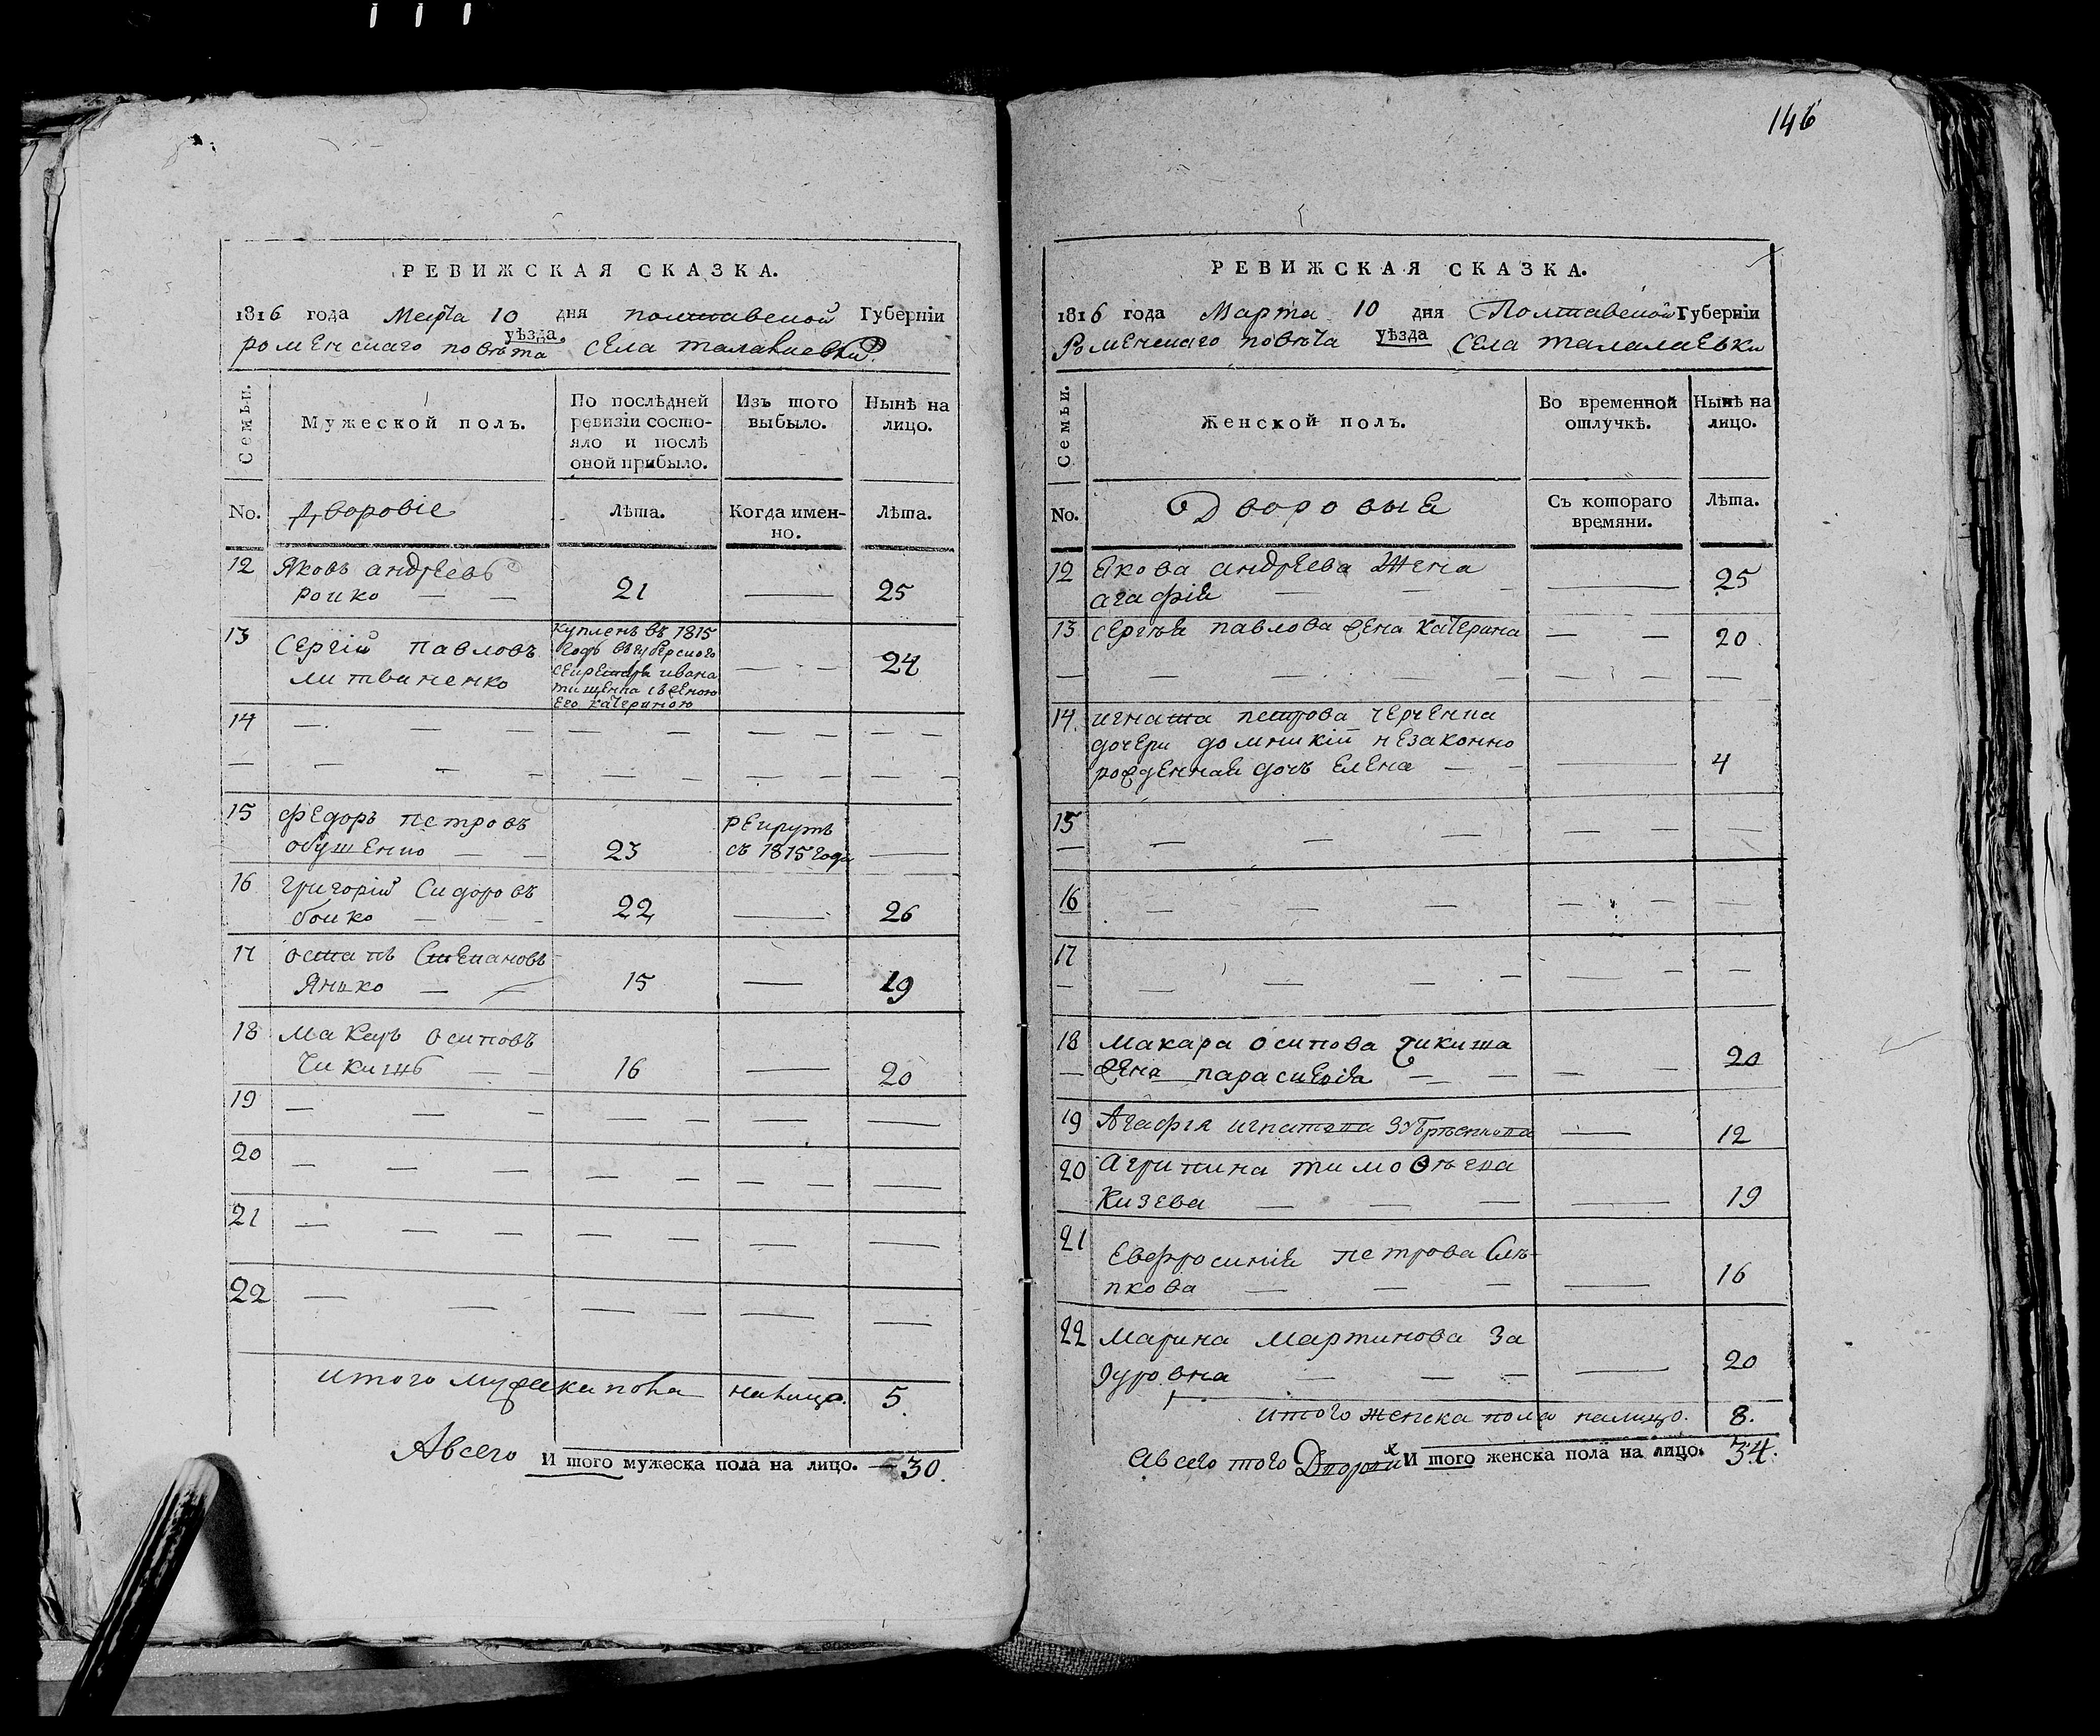 146
РЕВИЖСКАЯ СКАЗКА.
1816 года Марта 10 дня полтавской Губерніи
роменскаго повѣта уѣзда села талалаевки
Семьи.
Мужеской полъ.
По послѣдней ревизіи состо-
яло и послѣ
оной прибыло.
Изъ того выбыло.
Нынѣ на лицо.
No. Дворовіе Лѣта. Когда имен-
но. Лѣта.
12 Яковъ андреевъ
роико — — 21 — 25
13 Сергій павловъ
литвиненко
купленъ въ 1815
годъ
секретаря ивана
тищенка съ женою
его катериною
— — 24
14 — — — — — — — — —
15 федоръ петровъ
обушенко — — 23
рекрутъ
съ 1815 года —
16 григорій Сидоровъ
боико — — 22 — 26
17 остапъ Степановъ
Янико — — 15 — 19
18 макаръ осиповъ
Чикишъ — — 16 — 20
19 — — — — — — — —
20 — — — — — — — —
21 — — — — — — —
22 — — — — — —
итого мужеска пола налицо. 5.
Авсего И того мужеска пола на лицо. — 30.
РЕВИЖСКАЯ СКАЗКА.
1816 года Марта 10 дня Полтавской Губерніи
Роменскаго повѣта уѣзда Села талалаевки
Семьи.
Женской полъ.
Во временной
отлучкѣ.
Нынѣ на
лицо.
No. Дворовыя Съ котораго
времяни. Лѣта.
12 Якова андреева Жена
агафія — — — — 25
13 сергѣя павлова жена катерина — — 20
— — — — — — —
14 игната петрова
дочери домникіи незаконно
рожденная дочъ елена — — — 4
15 — — — — — — —
16 — — — — — —
17 — — — — — — —
18 макара осипова чикиша
жена парасковія — — — — — 20
19 Агафія игнатова — 12
20 агрипина тимоѳѣева
Кизева — — — — 19
21 Евфросинія петрова Слѣ-
пкова — — — — 16
22 Марина мартинова За
дуровна — — — — 20
итого женска пола налицо. 8.
Авсего того Дворовихъ И того женска пола на лицо. 34.